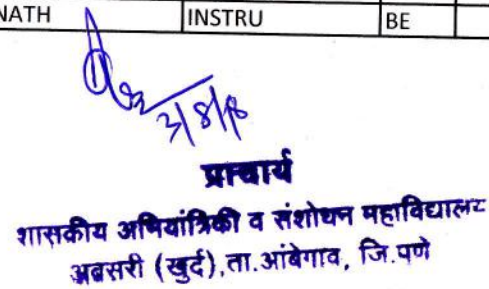 NATH INSTRU BE
3/8/18
प्राचार्य
शासकीय अभियांत्रिकी व संशोधन महाविद्यालय
अवसरी (खुर्द),ता.आंबेगाव, जि.पुणे